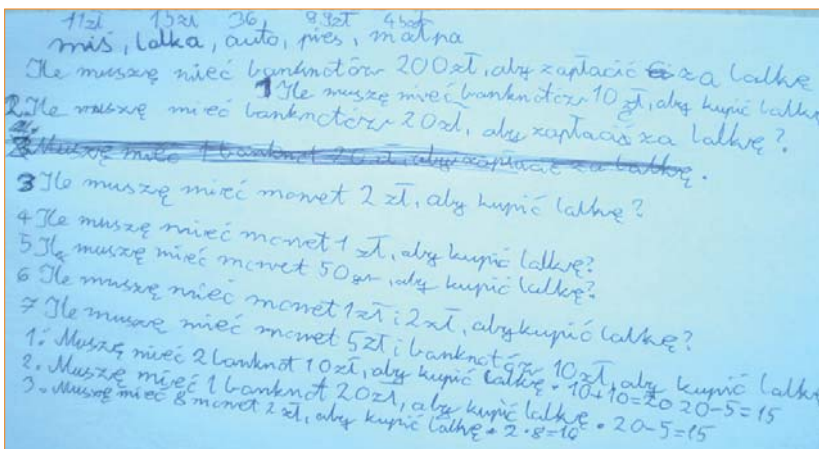 11zł 15zł 36, 8,9zł 45zł
miś, lalka, auto, pies, małpa
Ile muszę mieć banknotów 200zł, aby zapłacić za lalkę
1 Ile muszę mieć banknotów 10 zł, aby kupić lalkę
2. Ile muszę mieć banknotów 20zł, aby zapłacić za lalkę?
2. Muszę mieć 1 banknot 20 zł, aby zapłacić za lalkę.
3 Ile muszę mieć monet 2 zł, aby kupić lalkę?
4 Ile muszę mieć monet 1 zł, aby kupić lalkę?
5 Ile muszę mieć monet 50gr, aby kupić lalkę?
6 Ile muszę mieć monet 1zł i 2zł, aby kupić lalkę?
7 Ile muszę mieć monet 5zł i banknotów 10zł, aby kupić lalkę
1. Muszę mieć 2 banknot 10zł, aby kupić lalkę. 10+10=20 20-5=15
2. Muszę mieć 1 banknot 20zł, aby kupić lalkę. 20-5=15
3. Muszę mieć 8 monet 2zł, aby kupić lalkę. 2·8=16